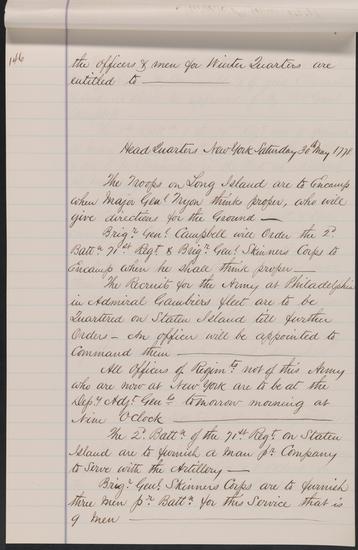 146
the officers & men for Winter Quarters are
entitled to
Head Quarters New York Saturday 30th May 1778
The Troops on Long Island are to Encamp
when Major Genl Tryon thinks proper, who will
give directions for the Ground —
Brigr Genl Campbell will Order the 2d
Battn 71st Regt & Brigr Genl Skinners Corps to
Encamp when he shall think proper —
The Recruits for the Army at Philadelphia
in Admiral Gambiers fleet are to be
Quartered on Staten Island till further
Orders — An officer will be appointed to
Command them
All Officers of Regimts not of this Army
who are now at New York are to be at the
Depy Adjt Genls tomorrow morning at
Nine O'Clock
The 2d Battn of the 71st Regt on Staten
Island are to furnish a man pr Company
to Serve with the Artillery —
Brigr Genl Skinners Corps are to furnish
three men pr Battn for this Service that is
9 men —